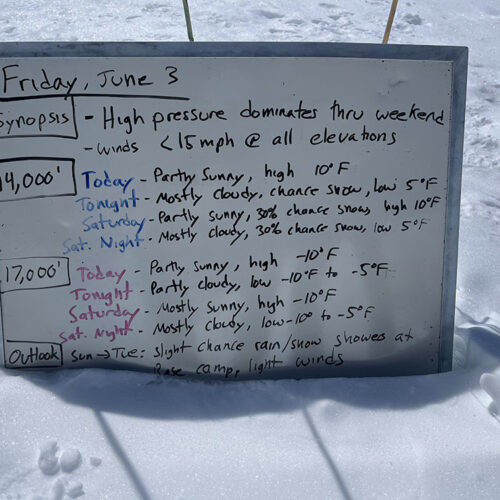 Friday, June 3
Synopsis - High pressure dominates thru weekend
- winds <15mph @ all elevations
14,000' Today - Partly Sunny, high 10°F
Tonight - Mostly cloudy, chance snow, low 5°F
Saturday - Partly sunny, 30% chance snow, high 10°F
Sat. Night - Mostly cloudy, 30% chance snow, low 5°F
17,000' Today - Partly sunny, high -10°F
Tonight - Partly cloudy, low -10°F to -5°F
Saturday - Mostly sunny, high -10°F
Sat. Night - Mostly cloudy, low -10° to -5°F
Outlook Sun → Tue: Slight chance rain/snow showers at
Base camp, light winds